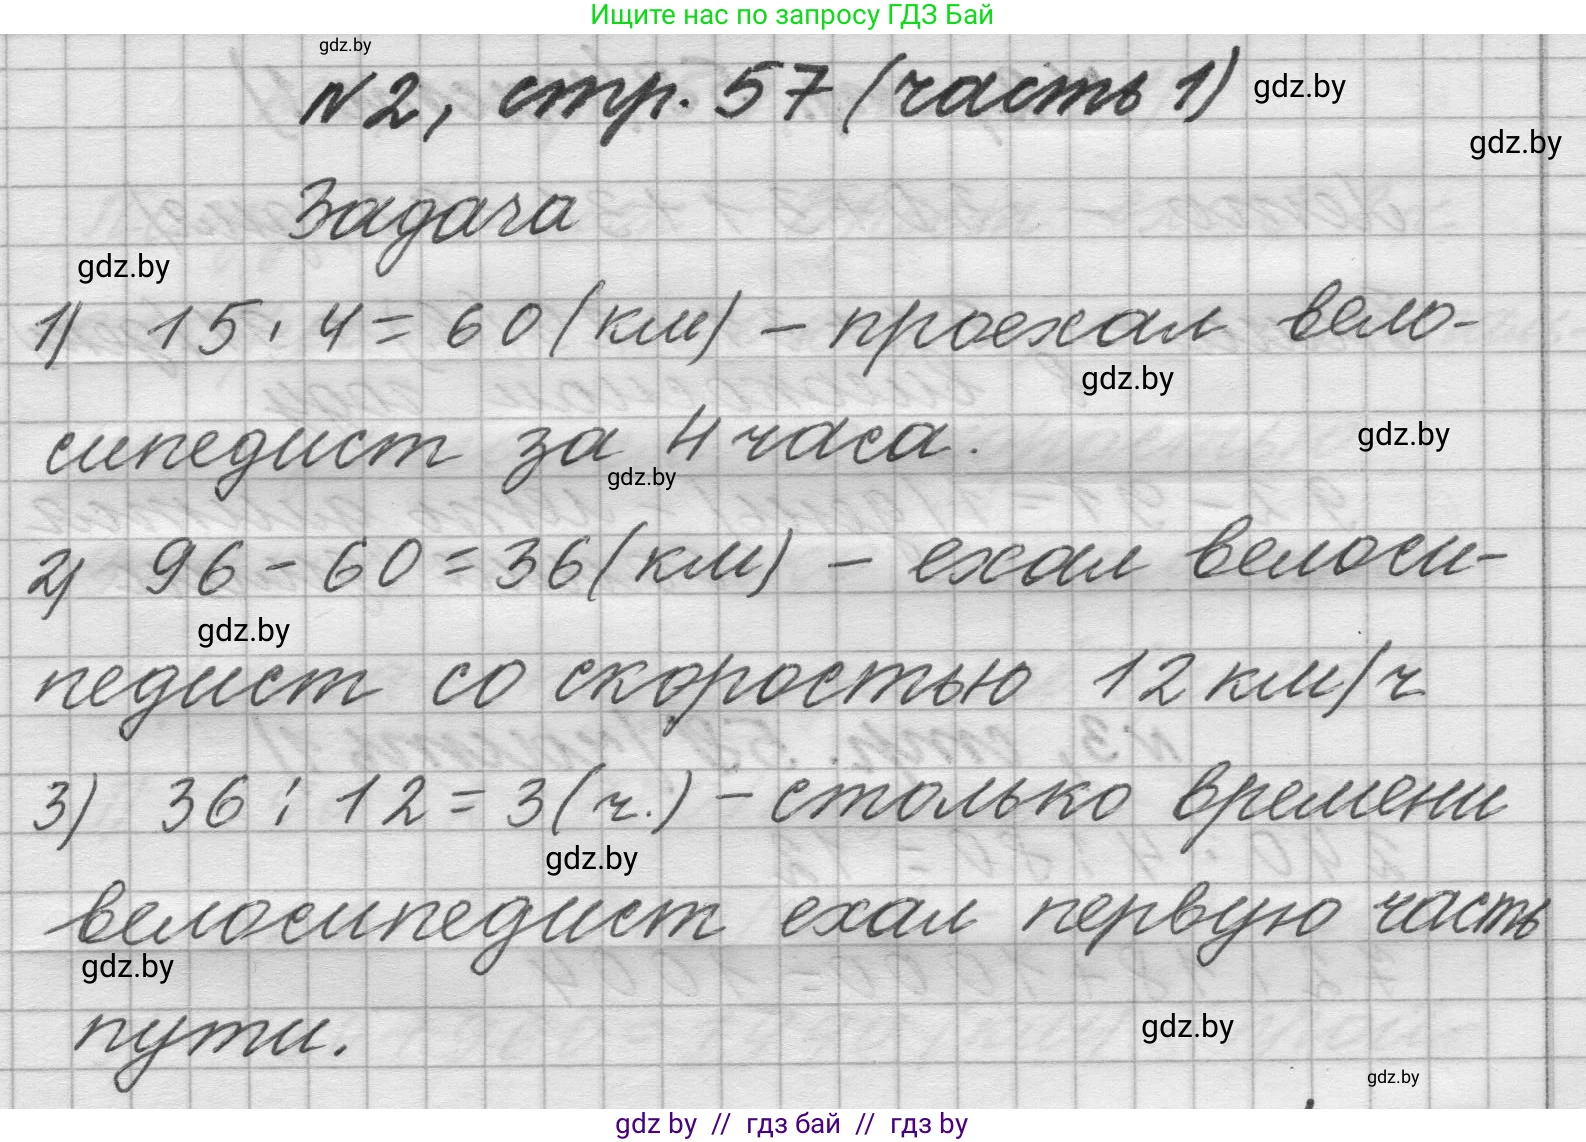 Ищите нас по запросу ГДЗ Бай
gdz.by
№2, стр. 57 (часть 1)
gdz.by
gdz.by
Задача
gdz.by
1) 15 · 4 = 60 (км) – проехал вело-
gdz.by
сипедист за 4 часа.
gdz.by
gdz.by
2) 96 - 60 = 36 (км) – ехал велоси-
gdz.by
педист со скоростью 12 км/ч
3) 36 : 12 = 3 (ч.) – столько времени
gdz.by
велосипедист ехал первую часть
gdz.by
пути.
gdz.by
gdz.by
gdz by // гдз бай // гдз by